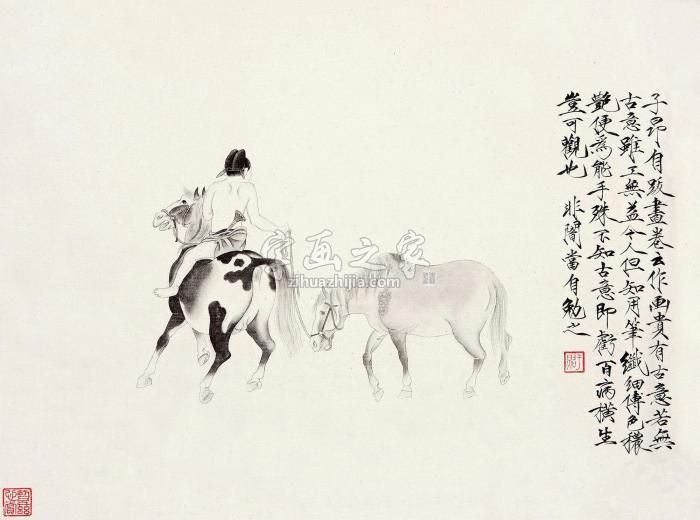 子昂自跋畫卷云作画貴有古意若無
古意雖工無益今人但知用筆纖细傅色穠
艷便為能手殊不知古意即虧百病橫生
豈可觀也 非闇當自勉之
字画之家
zihuazhijia.com